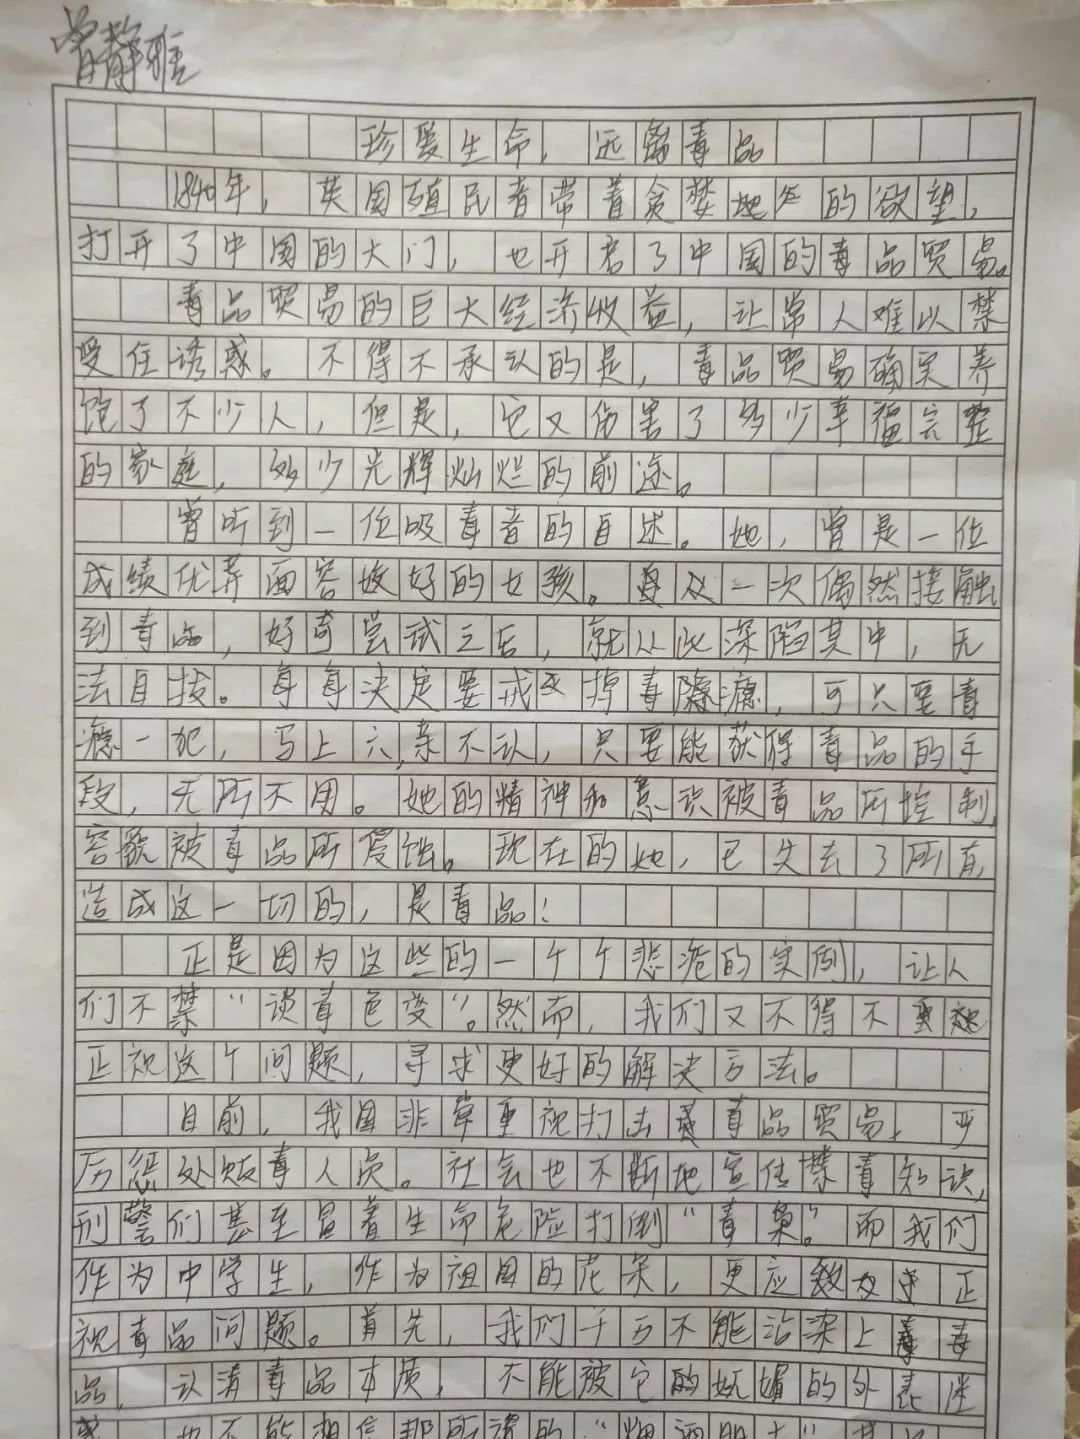 曾静雅
珍爱生命，远离毒品
1840年，英国殖民者带着贪婪地的欲望，
打开了中国的大门，也开启了中国的毒品贸易。
毒品贸易的巨大经济收益，让常人难以禁
受住诱惑。不得不承认的是，毒品贸易确实养
饱了不少人，但是，它又伤害了多少幸福完整
的家庭，多少光辉灿烂的前途。
曾听到一位吸毒者的自述。她，曾是一位
成绩优异面容姣好的女孩。从一次偶然接触
到毒品，好奇尝试之后，就从此深陷其中，无
法自拔。每每决定要戒掉毒瘾，可只要毒
瘾一犯，马上六亲不认，只要能获得毒品的手
段，无所不用。她的精神和意识被毒品所控制，
容貌被毒品所侵蚀。现在的她，已失去了所有，
造成这一切的，是毒品！
正是因为这些的一个个悲惨的实例，让人
们不禁“谈毒色变”。然而，我们又不得不
正视这个问题，寻求更好的解决方法。
目前，我国非常重视打击毒品贸易，严
厉惩处贩毒人员。社会也不断地宣传禁毒知识，
刑警们甚至冒着生命危险打倒“毒枭”。而我们
作为中学生，作为祖国的花朵，更应正
视毒品问题。首先，我们千万不能沾染上毒
品，认清毒品本质，不能被它的妩媚的外表迷
惑，也不能相信那所谓的“烟酒朋友”